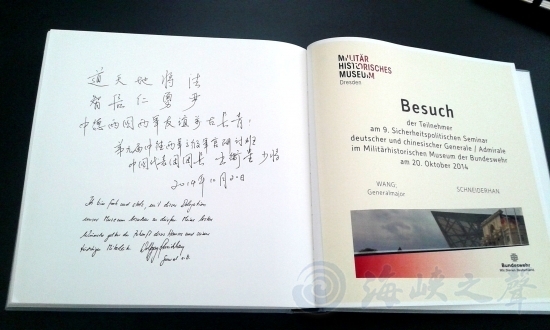 道天地将法
智信仁勇严
中德两国两军友谊万古长青.
中国代表团团长 少将
2014年10月20日
Ich bin froh und stolz, mit dieser Delegation
unser Museum besuchen zu dürfen. Meine besten
Wünsche gelten der Zukunft dieses Hauses und seiner
MILITÄR
HISTORISCHES
MUSEUM
Dresden
Besuch
der Teilnehmer
am 9. Sicherheitspolitischen Seminar
deutscher und chinesischer Generale / Admirale
im Militärhistorischen Museum der Bundeswehr
am 20. Oktober 2014
WANG,
Generalmajor
SCHNEIDERHAN
Bundeswehr
Wir. Dienen. Deutschland.
海峡之声